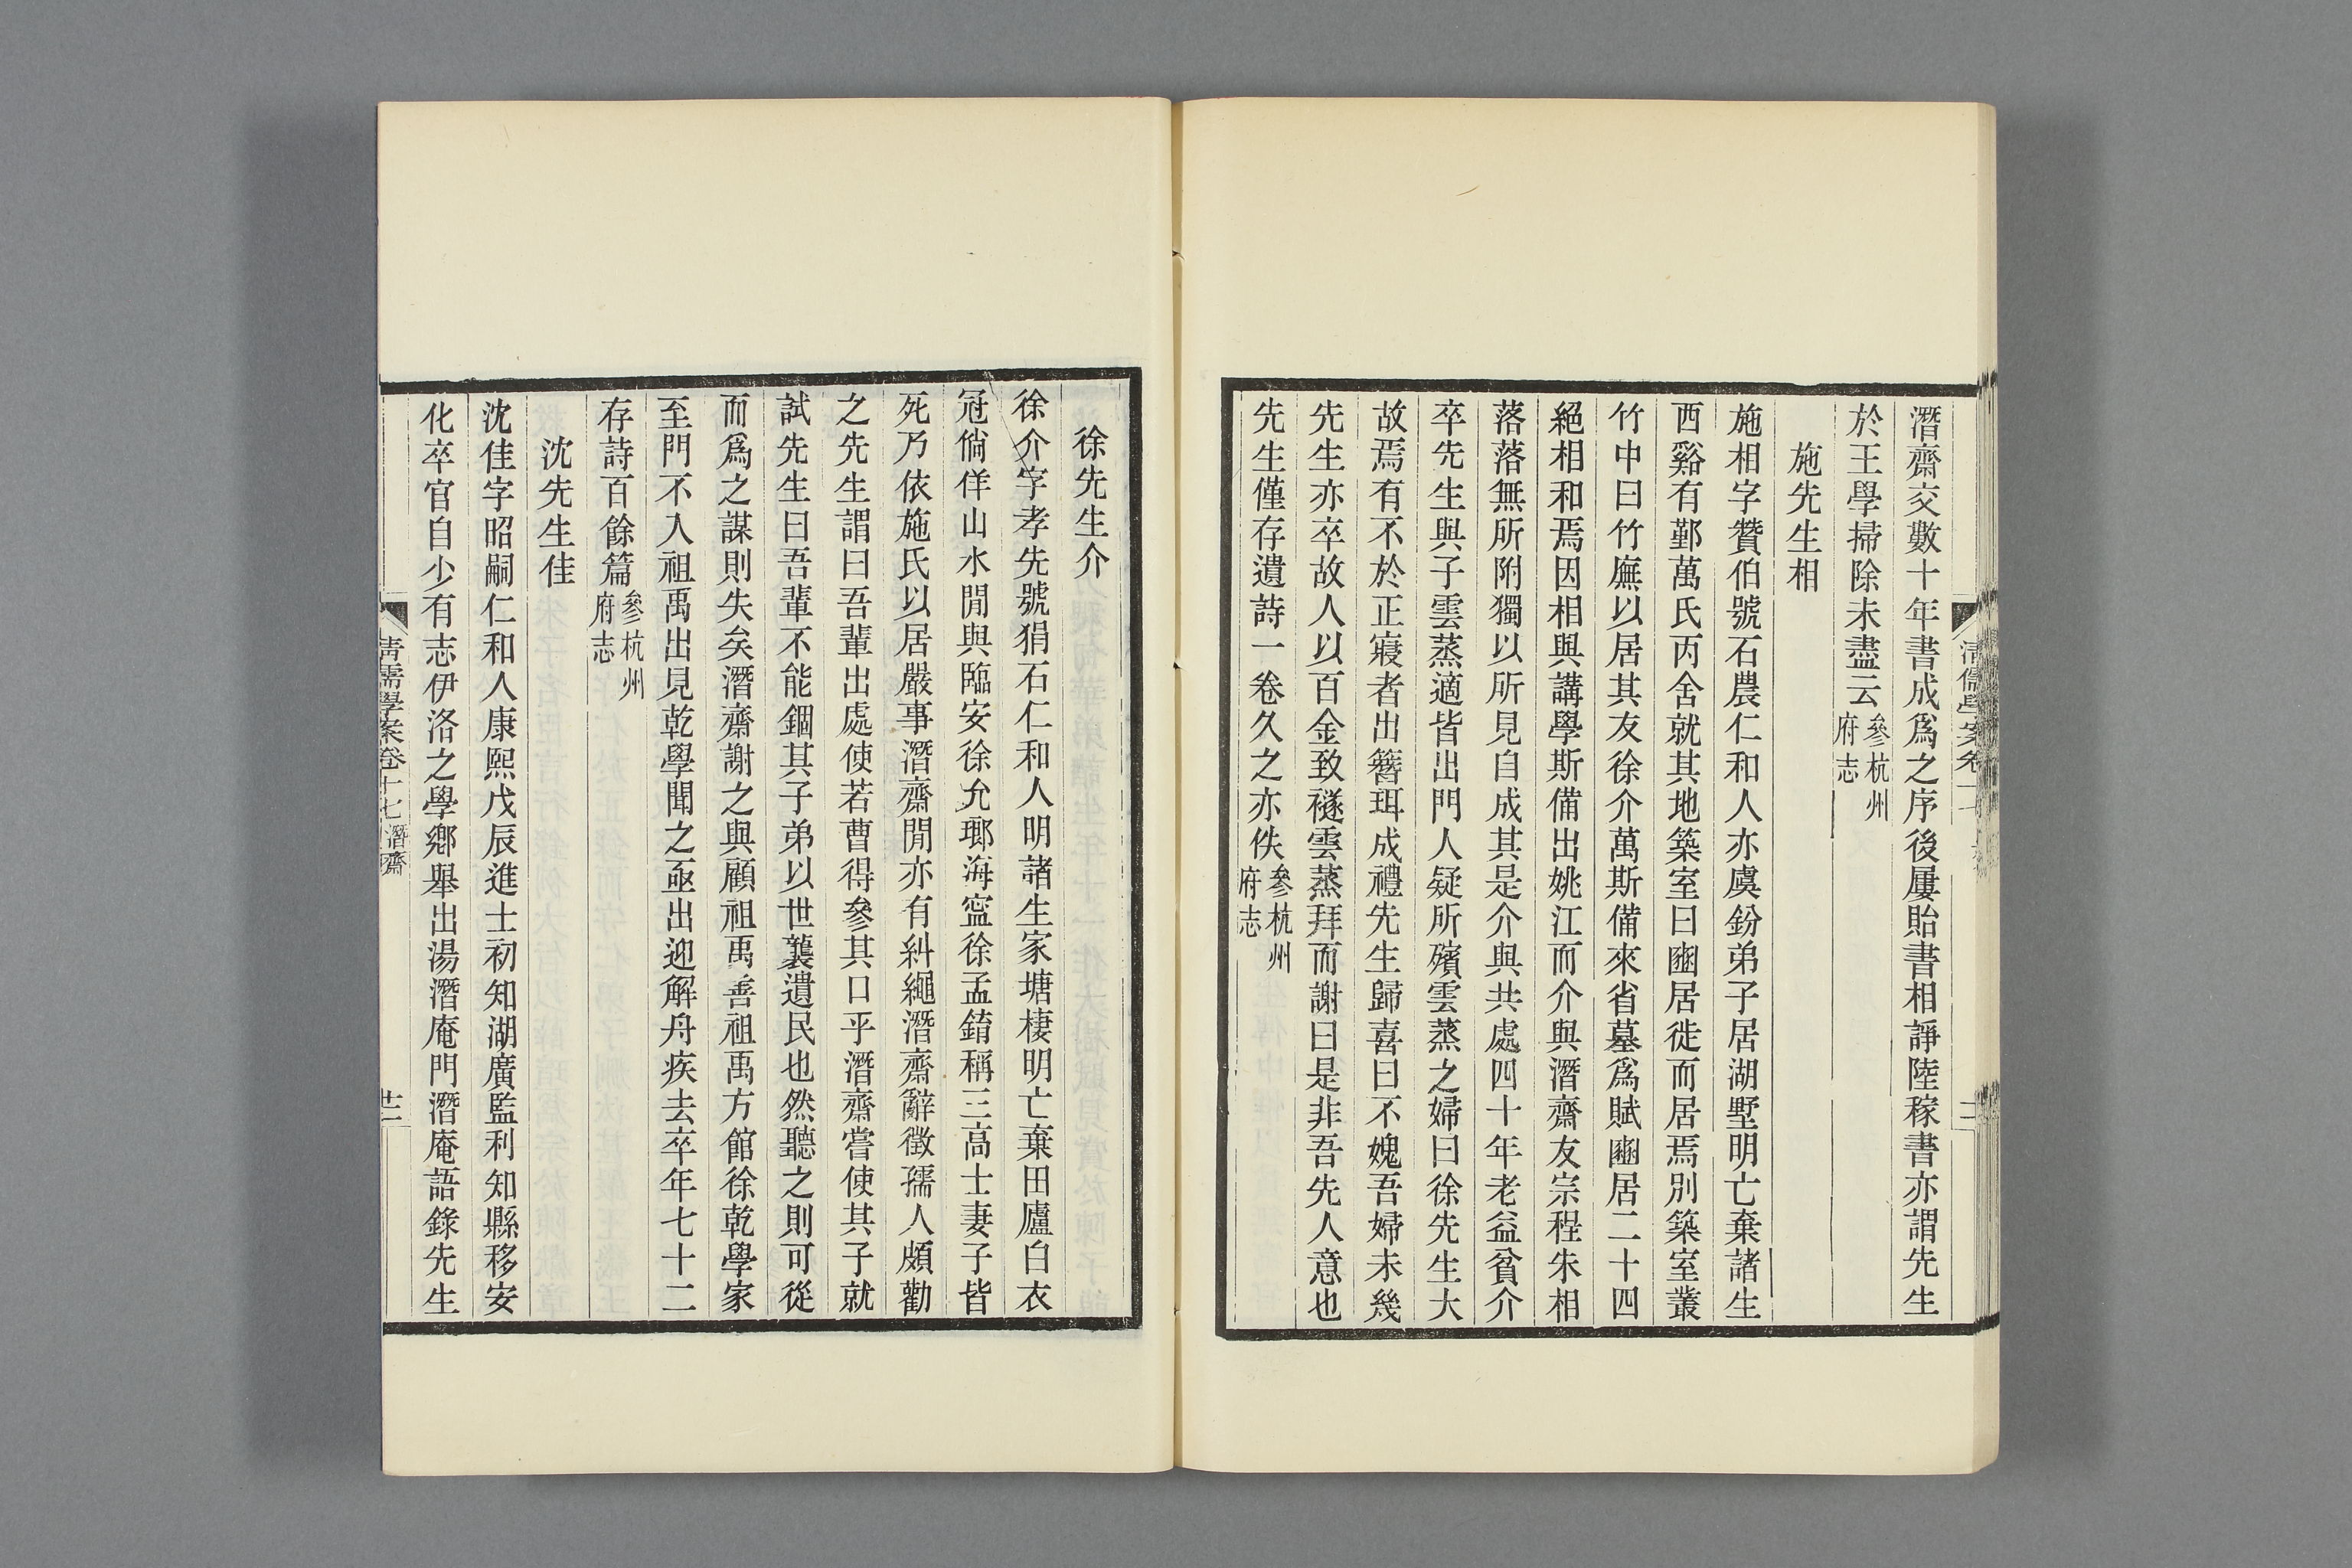 潛齋交數十年書成爲之序後屢貽書相諍陸稼書亦謂先生
於王學掃除未盡云參杭州府志
施先生相
施相字贊伯號石農仁和人亦虞鈖弟子居湖墅明亡棄諸生
西谿有鄞萬氏丙舍就其地築室曰豳居徙而居焉別築室叢
竹中曰竹廡以居其友徐介萬斯備來省墓爲賦豳居二十四
絕相和焉因相與講學斯備出姚江而介與潛齋友宗程朱相
落落無所附獨以所見自成其是介與共處四十年老益貧介
卒先生與子雲蒸適皆出門人疑所殯雲蒸之婦曰徐先生大
故焉有不於正寢者出簪珥成禮先生歸喜曰不媿吾婦未幾
先生亦卒故人以百金致襚雲蒸拜而謝曰是非吾先人意也
先生僅存遺詩一卷久之亦佚參杭州府志
徐先生介
徐介字孝先號狷石仁和人明諸生家塘棲明亡棄田廬白衣
冠徜徉山水閒與臨安徐允瑯海寍徐孟錥稱三高士妻子皆
死乃依施氏以居嚴事潛齋閒亦有糾繩潛齋辭徵孺人頗勸
之先生謂曰吾輩出處使若曹得參其口乎潛齋嘗使其子就
試先生曰吾輩不能錮其子弟以世襲遺民也然聽之則可從
而爲之謀則失矣潛齋謝之與顧祖禹善祖禹方館徐乾學家
至門不入祖禹出見乾學聞之亟出迎解舟疾去卒年七十二
存詩百餘篇參杭州府志
沈先生佳
沈佳字昭嗣仁和人康熙戊辰進士初知湖廣監利知縣移安
化卒官自少有志伊洛之學鄉舉出湯潛庵門潛庵語錄先生
清儒學案卷十七 潛齋